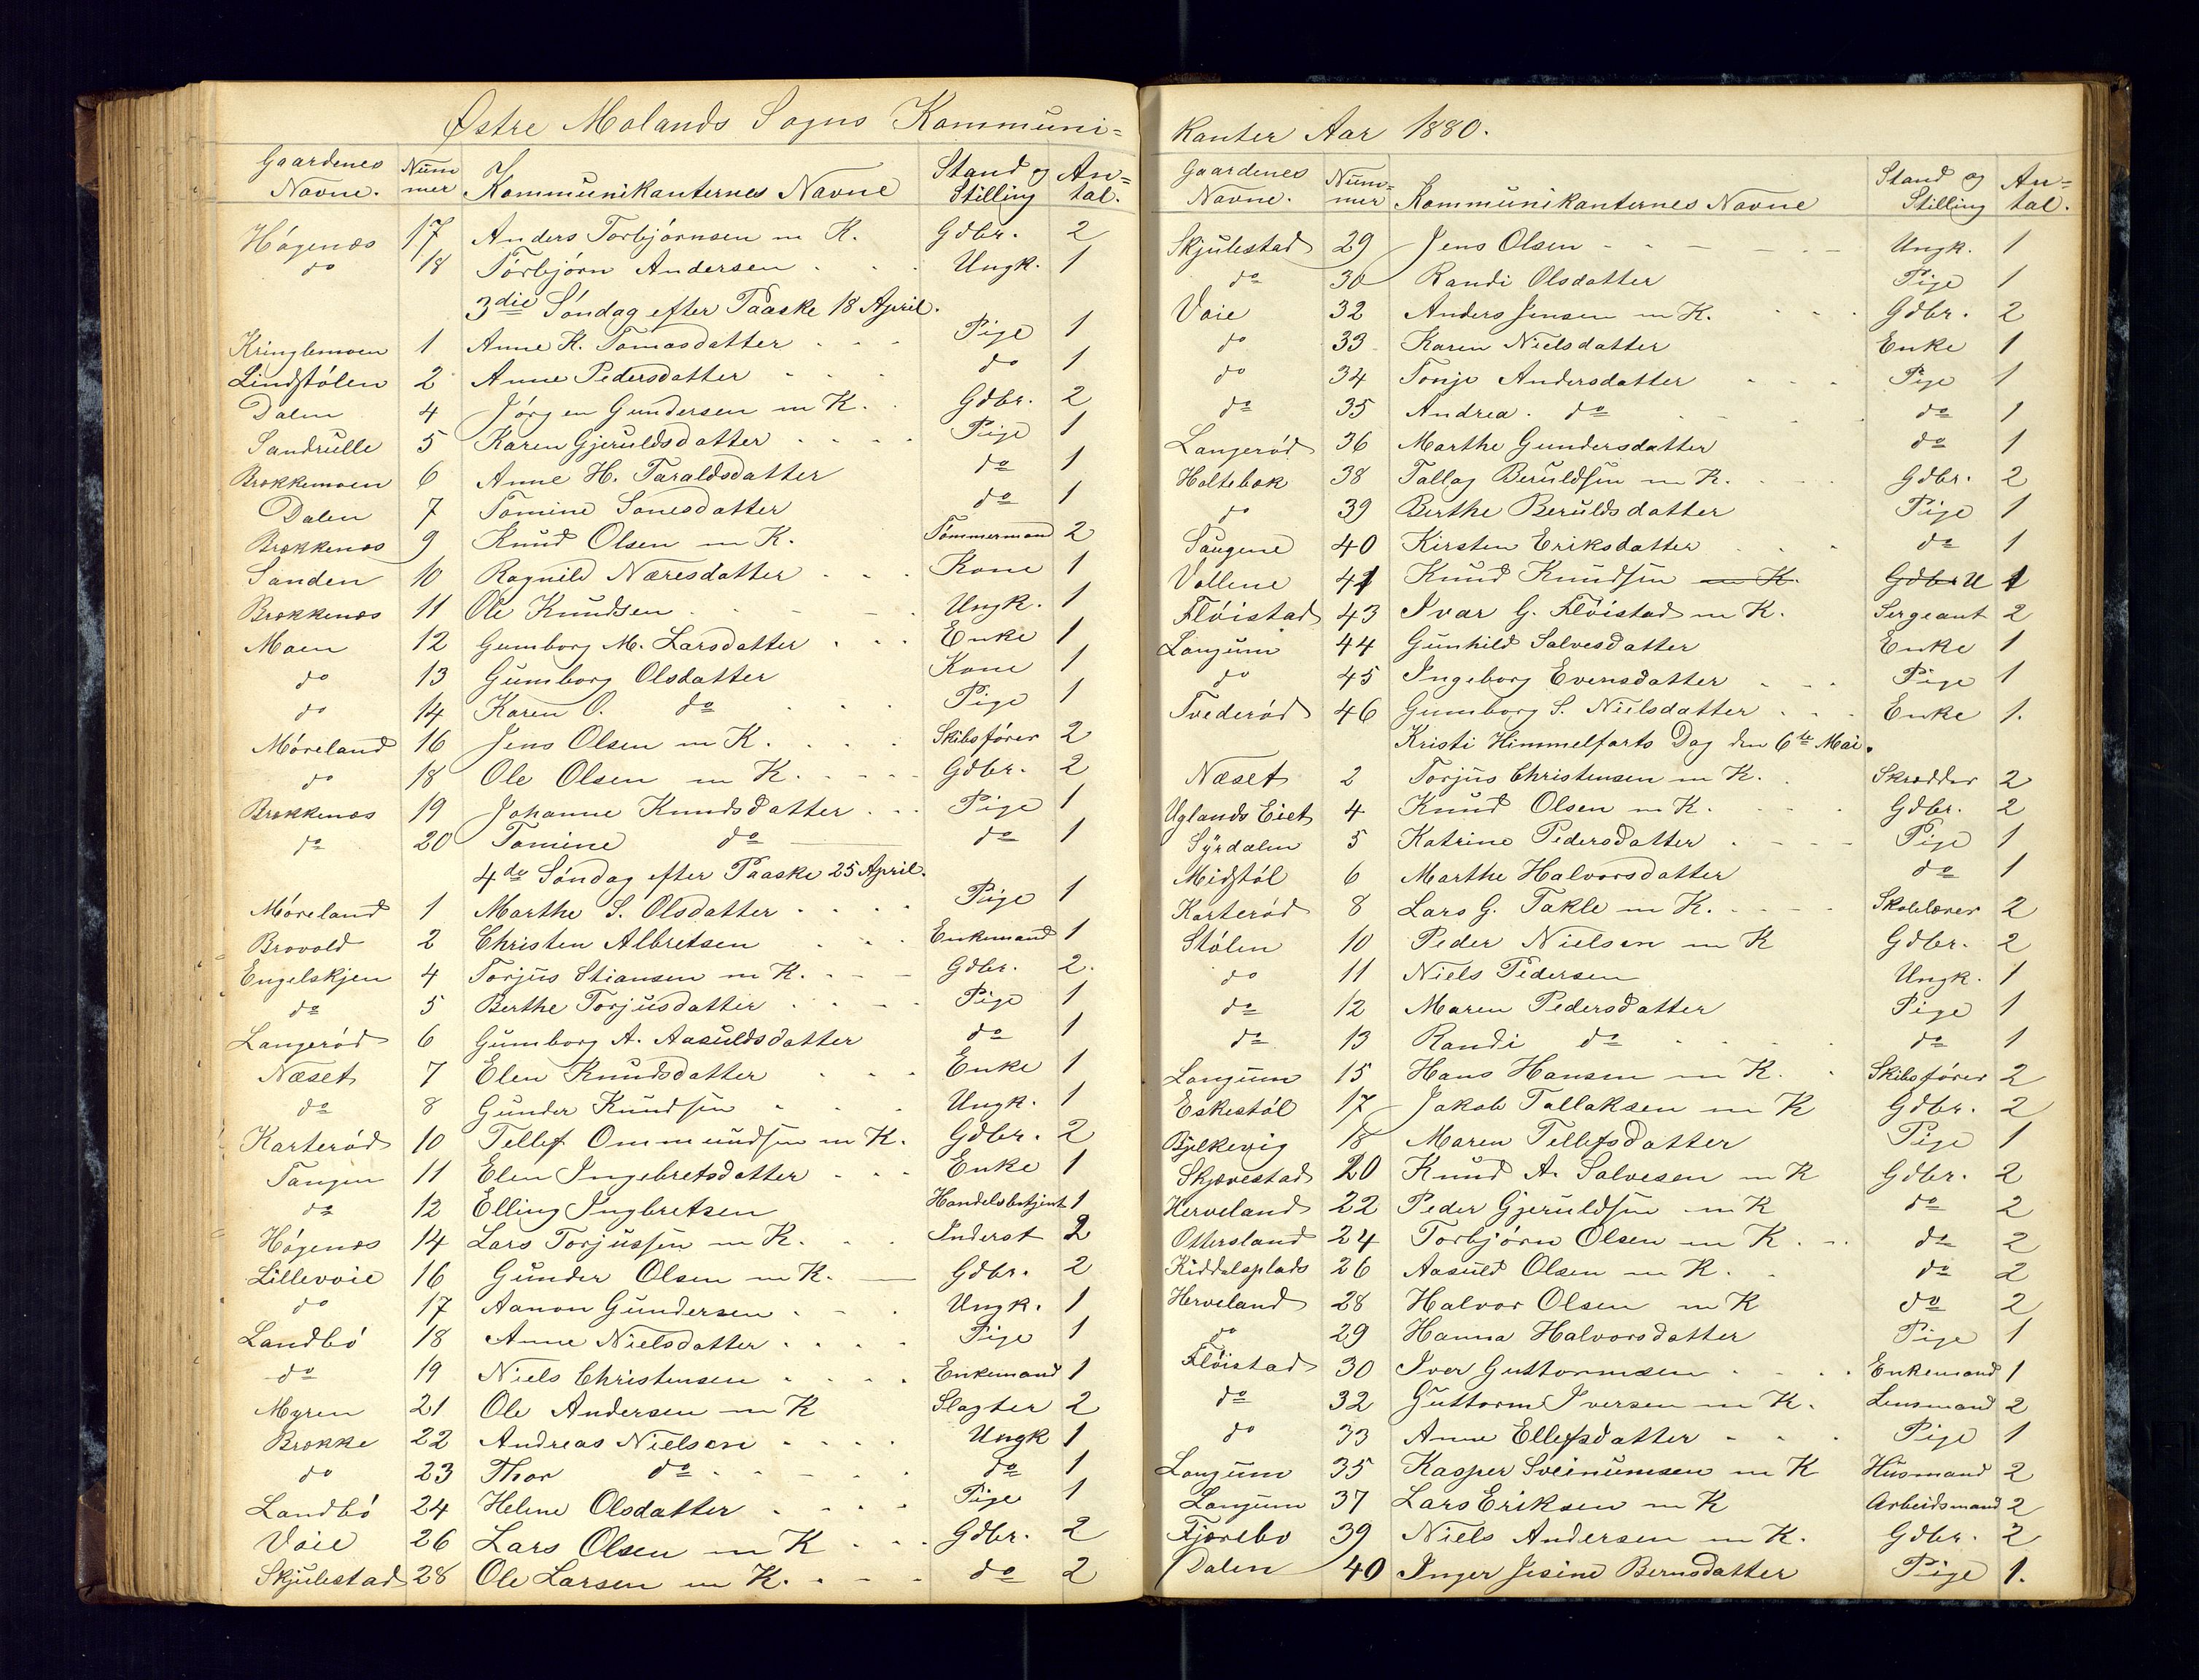 Østre Molands Sogns Kommuni=
Gaardenes Navne. Num mer Kommunikanternes Navne Stand og Stilling An= tal.
Högenæs 17 Anders Torbjörnsen m K. Gdbr. 2
do 18 Törbjörn Andersen Ungk. 1
3die Söndag efter Paaske 18 April.
Kringlemoen 1 Anne K. Tomasdatter Pige 1
Lindstölen 2 Anne Pedersdatter do 1
Dalen 4 Jörgen Gundersen m K. Gdbr. 2
Sandrulle 5 Karen Gjeruldsdatter Pige 1
Brækkemoen 6 Anne H. Taraldsdatter do 1
Dalen 7 Tomine Tonesdatter do 1
Brækkenæs 9 Knud Olsen m K. Tömmermand 2
Sanden 10 Ragnild Næresdatter Kone 1
Brækkenæs 11 Ole Knudsen Ungk. 1
Moen 12 Gumborg M. Larsdatter Enke 1
do 13 Gumborg Olsdatter Kone 1
do 14 Karen O. do Pige 1
Möreland 16 Jens Olsen m K. Skibsförer 2
do 18 Ole Olsen m K. Gdbr. 2
Brækkenæs 19 Johanne Knudsdatter Pige 1
do 20 Tomine do do 1
4de Söndag efter Paaske 25 April.
Möreland 1 Marthe S. Olsdatter Pige 1
Brovold 2 Christen Albretsen Enkemand 1
Engelskjen 4 Torjus Stiansen m K. Gdbr. 2.
do 5 Berthe Torjusdatter Pige 1
Langeröd 6 Gumborg A. Aasuldsdatter do 1
Næset 7 Elen Knudsdatter Enke 1
do 8 Gunder Knudsen Ungk. 1
Karteröd 10 Tellef Ommundsen m K. Gdbr. 2
Tangen 11 Elen Ingebretsdatter Enke 1
do 12 Elling Ingbretsen Handelsbetjent 1
Högenæs 14 Lars Torjussen m K. Inderst 2
Lillevoie 16 Gunder Olsen m K. Gdbr. 2
do 17 Aanon Gundersen Ungk. 1
Landbö 18 Anne Nielsdatter Pige 1
do 19 Niels Christensen Enkemand 1
Myren 21 Ole Andersen m K Slagter 2
Brække 22 Andreas Nielsen Ungk 1
do 23 Thor do do 1
Landbö 24 Helene Olsdatter Pige 1
Voie 26 Lars Olsen m K Gdbr. 2
Skjulestad 28 Ole Larsen m K. do 2
kanter Aar 1880.
Gaardenes Navne. Num= mer Kommunikanternes Navne Stand og Stilling An= tal.
Skjulestad 29 Jens Olsen Ungk. 1
do 30 Randi Olsdatter Pige 1
Voie 32 Anders Jensen m K. Gdbr. 2
do 33 Karen Nielsdatter Enke 1
do 34 Tonje Andersdatter Pige 1
do 35 Andrea. do do 1
Langeröd 36 Marthe Gundersdatter do 1
Holtebæk 38 Tallag Beruldsen m K. Gdbr. 2
do 39 Berthe Beruldsdatter Pige 1
Saugene 40 Kirsten Eriksdatter do 1
Vollene 41 Knud Knudsen m K. Gdbr U 1
Flöistad 43 Ivar G. Flöistad m K. Sergeant 2
Langum 44 Gunhild Salvesdatter Enke 1
do 45 Ingeborg Evensdatter Pige 1
Tvederöd 46 Gumborg S. Nielsdatter Enke 1.
Kristi Himmelfarts Dag den 6te Mai.
Næset 2 Torjus Christensen m K. Skrædder 2
Uglands Eiet 4 Knud Olsen m K. Gdbr. 2
Syrdalen 5 Katrine Pedersdatter Pige 1
Midstöl 6 Marthe Halvorsdatter do 1
Karteröd 8 Lars G. Takle m K. Skolelærer 2
Stölen 10 Peder Nielsen m K Gdbr. 2
do 11 Niels Pedersen Ungk. 1
do 12 Maren Pedersdatter Pige 1
do 13 Randi do do 1
Langum 15 Hans Hansen m K. Skibsförer 2
Eskestöl 17 Jakob Tallaksen m K Gdbr. 2
Bjelkevig 18 Maren Tellefsdatter Pige 1
Skjævestad 20 Knud A. Salvesen m K Gdbr. 2
Herveland 22 Peder Gjeruldsen m K do 2
Ottersland 24 Torbjörn Olsen m K. do 2
Kiddelsplads 26 Aasuld Olsen m K. do 2
Herveland 28 Halvor Olsen m K do 2
do 29 Hanna Halvorsdatter Pige 1
Flöistad 30 Iver Guttormsen Enkemand 1
do 32 Guttorm Iversen m K. Lensmand 2
do 33 Anne Ellefsdatter Pige 1
Langum 35 Kasper Sveinumsen m K Husmand 2
Langum 37 Lars Eriksen m K Arbeidsmand 2
Fjærebo 39 Niels Andersen m K. Gdbr. 2
Dalen 40 Inger Jesine Bernsdatter Pige 1.